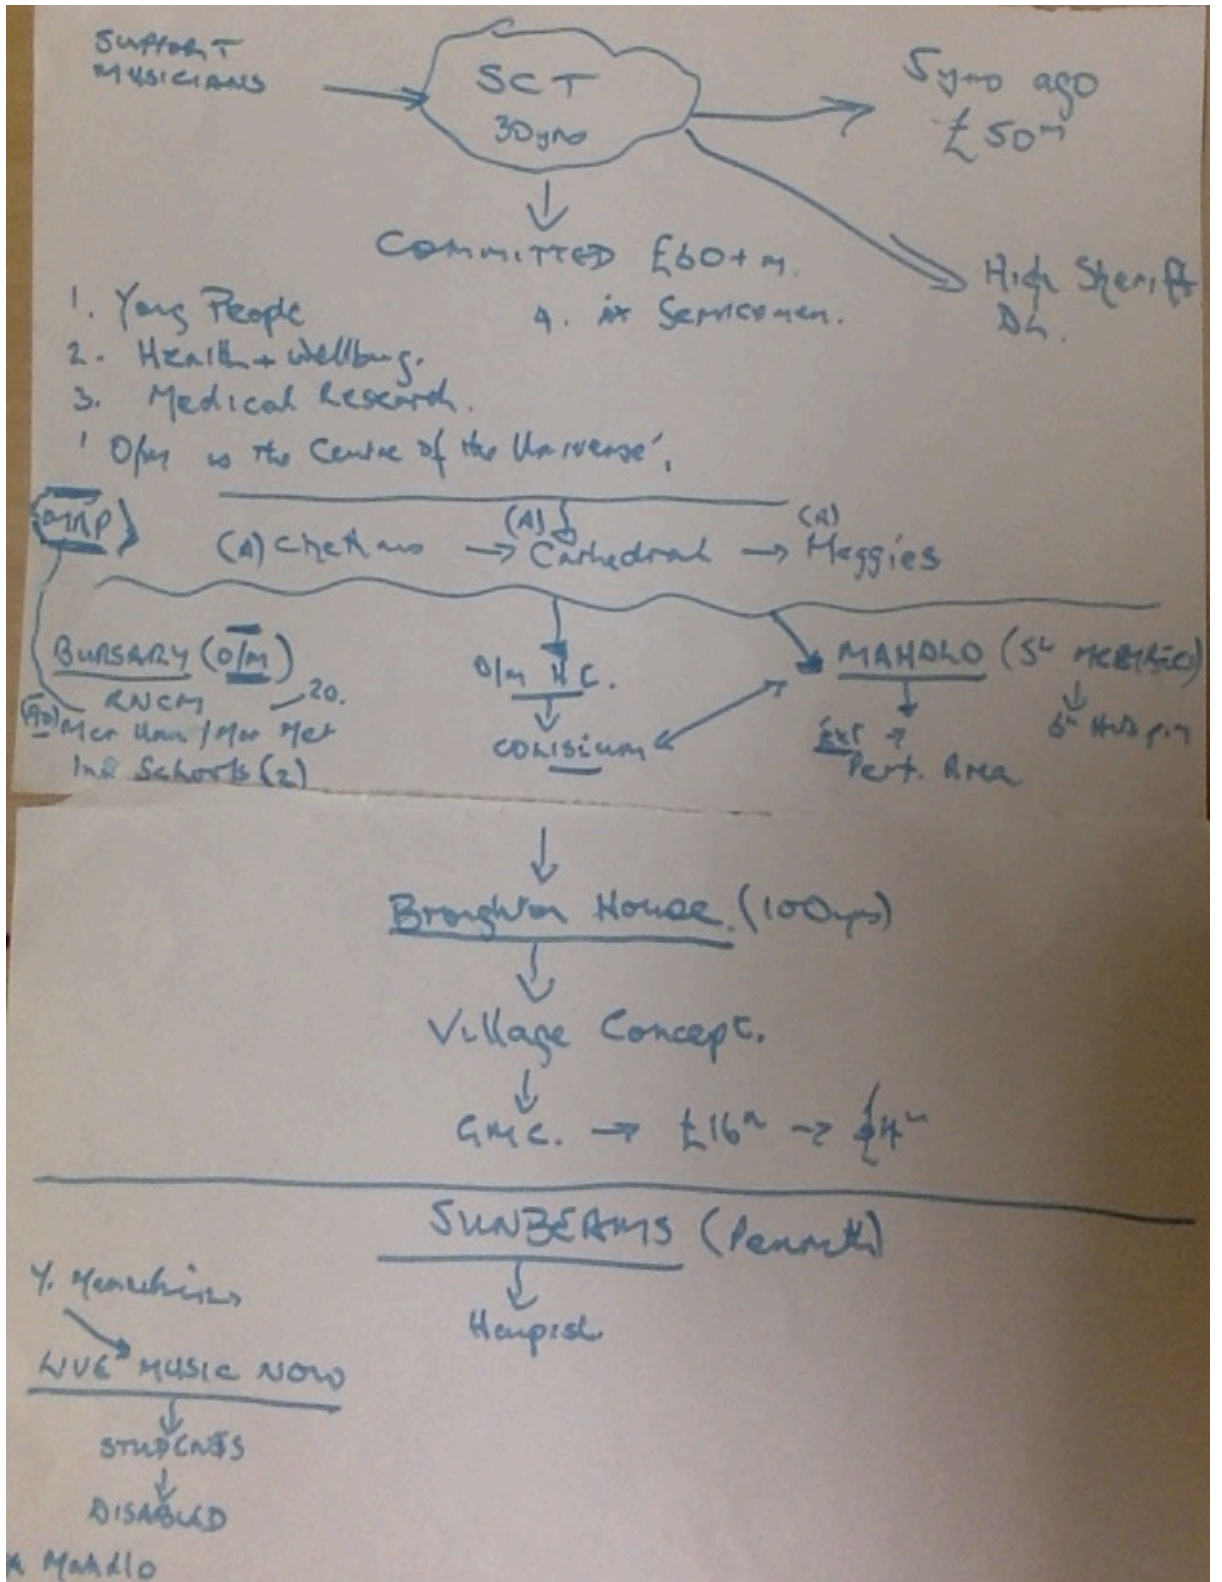 SUPPORT
MUSICIANS
SCT
30yrs
5yrs ago
£50m
COMMITTED £60+m.
High Sheriff
DL.
1. Young People
4. ex Servicemen.
2. Health + Wellbeing.
3. Medical Research.
'O/M is the Centre of the Universe'.
MAP
(A) Chethams → (A) Cathedral → (A) Maggies
BURSARY (O/M)
RNCM 20.
Man Met
Ind Schools (2)
O/M H.C.
COLISIUM
MAHDLO
Ext →
Perf. Area
Broughton House (100yrs)
Village Concept.
GMC. → £16m →
SUNBEAMS (Penrith)
Harpist
Y. Menuhin
LIVE MUSIC NOW
STUDENTS
DISABLED
Mahdlo